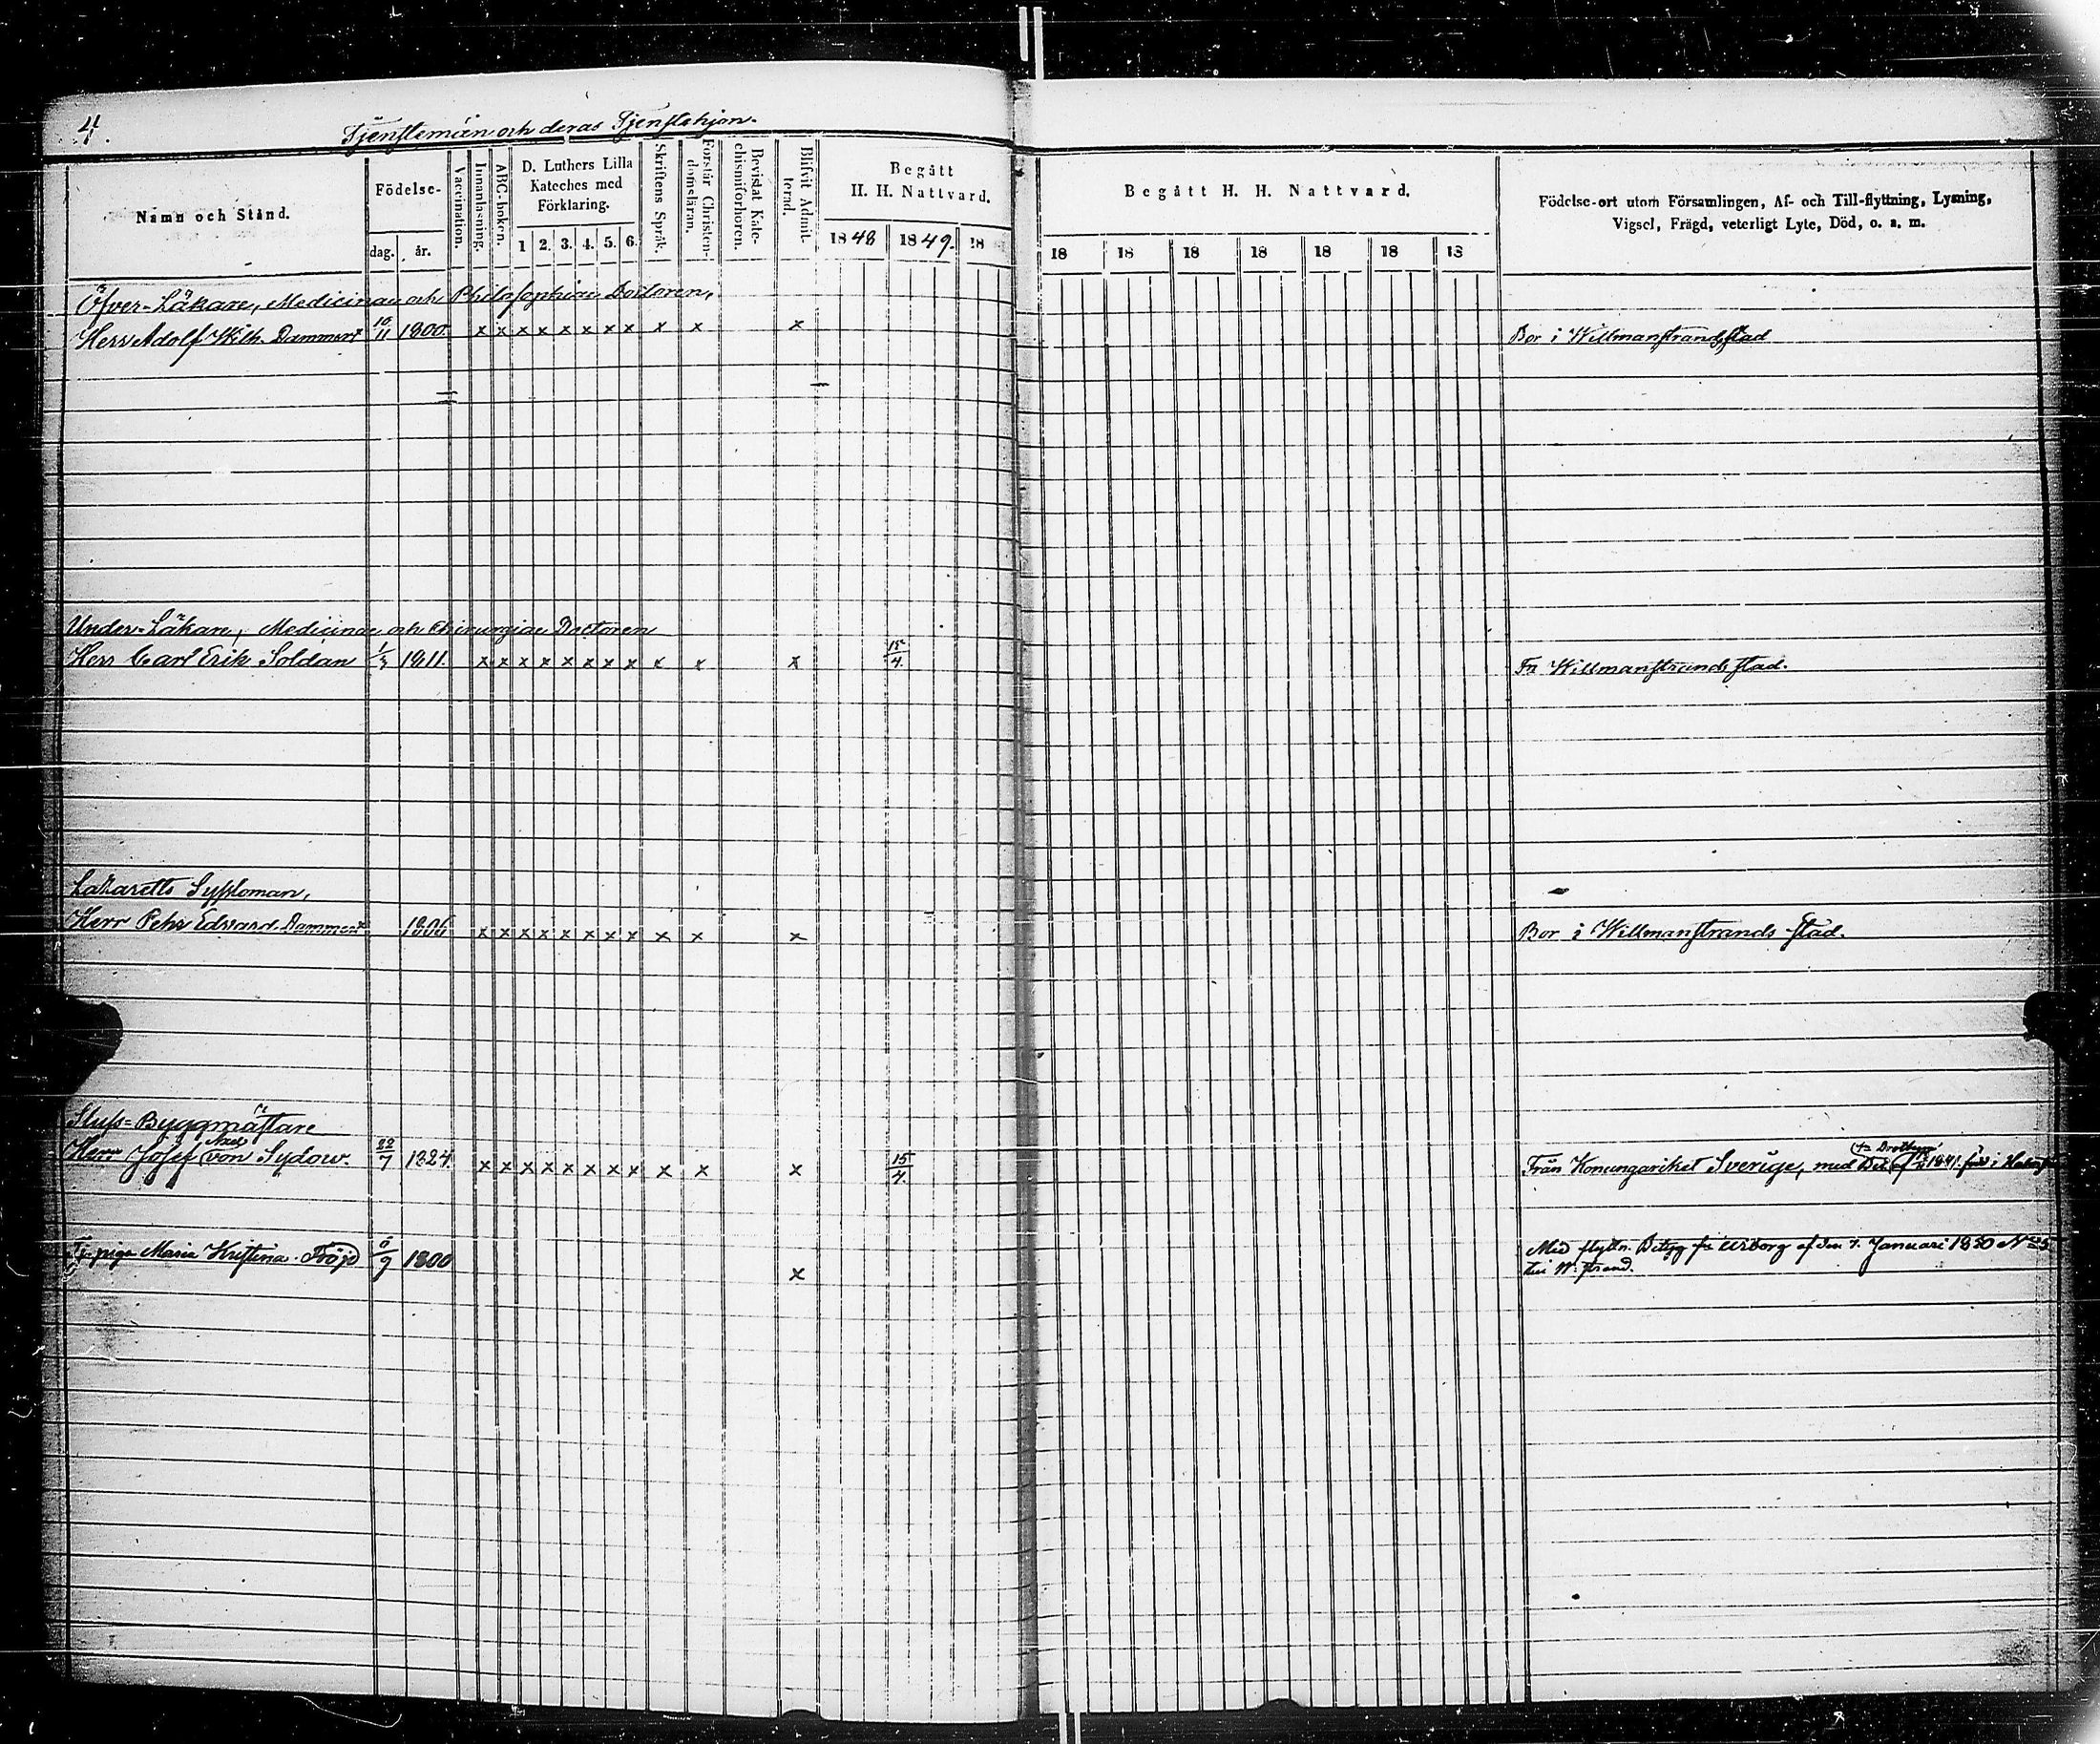 4.
Tjenstemän och deras Tjenstehjon.
Namn och Stånd.
Födelse-
dag.
år.
Vaccination.
Innanläsning.
ABC-boken.
D. Luthers Lilla
Kateches med
Förklaring.
1 2. 3. 4. 5. 6.
Skriftens Språk.
Förstår Christen-
domsläran.
Bevistat Kate-
chismiförhören.
Blifvit Admit-
terad.
Begått
H. H. Nattvard.
1848 1849. 18
Begått H. H. Nattvard.
18 18 18 18 18 18 18
Födelse-ort utom Församlingen, Af- och Till-flyttning, Lysning,
Vigsel, Frägd, veterligt Lyte, Död, o. s. m.
Öfver-Läkare, Medicinae och Philosophiae Doctoren,
Herr Adolf Wilh. Dammert 10/11 1800. x x x x x x x x x x x Bor i Willmanstrands stad
Under-Läkare, Medicinae och Chirurgiae Doctoren
Herr Carl Erik Soldan 1/3 1811. x x x x x x x x x x x 15/4. Fr Willmanstrands stad.
Lazaretts Syssloman,
Herr Pehr Edvard Dammert 1806 x x x x x x x x x x x Bor i Willmanstrands stad.
Sluss-Byggmästare
Herr Josef Axel von Sydow. 22/7 1824. x x x x x x x x x x x 15/4. Från Konungariket Sverige, med 1841
Tj. piga Maria Kristina Fröjd 6/9 1800 x Med flyttn. Betyg fr Wiborg af den 7. Januari 1850 No 5
W: strand.